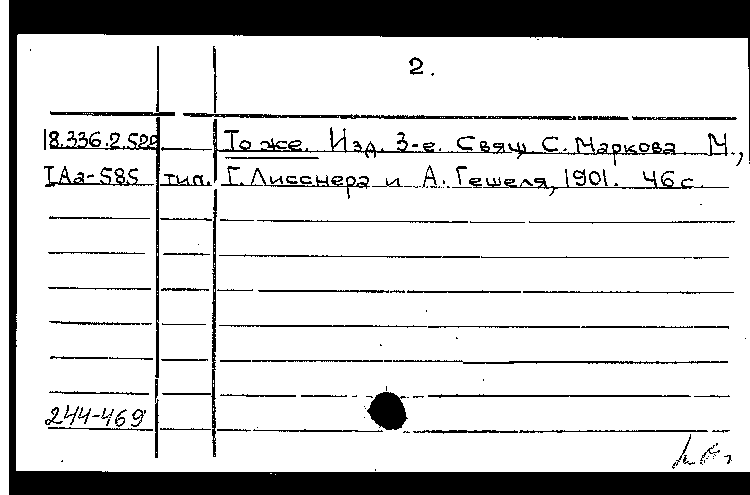 2.
18.336.2.522 То же. Изд. 3-е. Свящ. С. Маркова. М.,
IАа-585 тип. Г. Лисснера и А. Гешеля, 1901. 46 с.
244-469